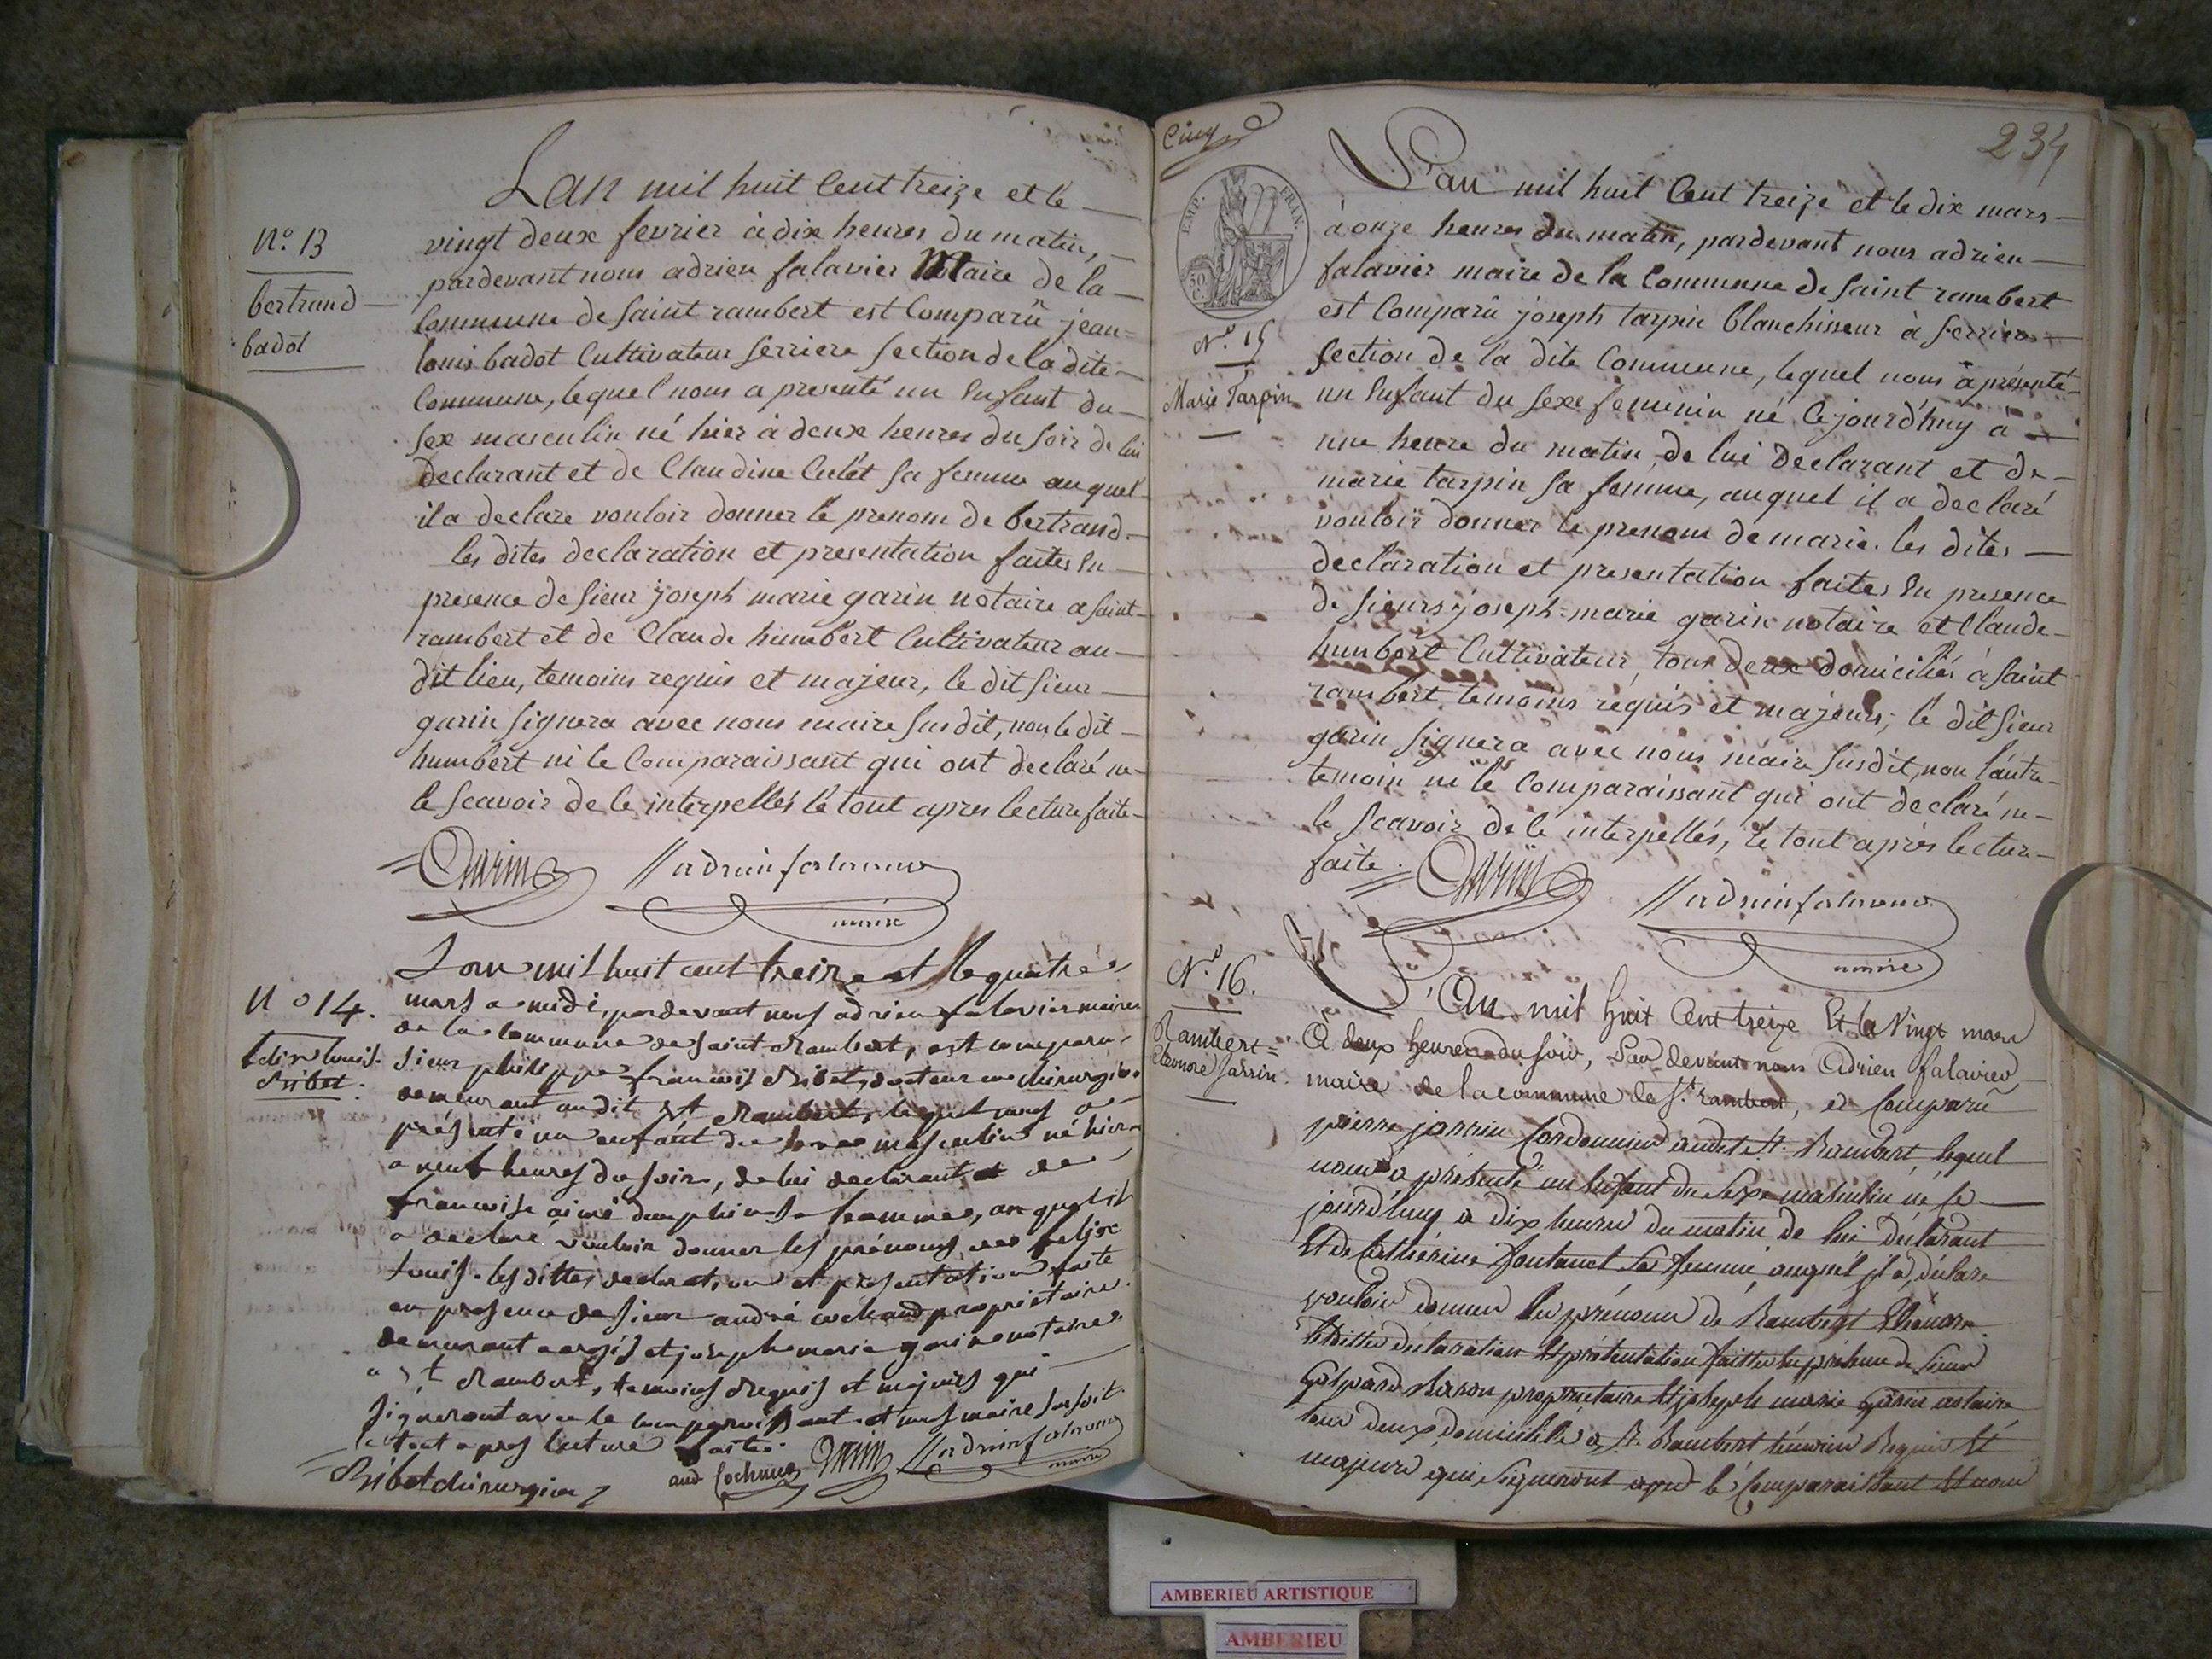 Lan mil huit Cent treize et le
vingt deux fevrier à dix heures du matin,
pardevant nous adrien falavier Maire de la
Commune de saint rambert est Comparû jean=
louis badot Cultivateur serriere section de la dite
Commune, lequel nous a presenté un Enfant du
sex masculin né hier à deux heures du soir de lui
declarant et de Claudine Culet sa femme auquel
il a declare vouloir donner le prenom de bertrand.
les dites declaration et presentation faites En
presence de sieur joseph marie garin notaire a saint
rambert et de Claude humbert Cultivateur au
dit lieu, temoins requis et majeur, le dit sieur
garin signera avec nous maire susdit, non le dit
humbert ni le Comparaissant qui ont declaré ne
le scavoir de le interpellés le tout apres lecture faite
N.o 13
bertrand
badot
Garin adrien falavier
maire
Lan mil huit cent treize et le quatre
mars a midi, pardevant nous adrien falavier maire
de la commune de saint Rambert, est comparu
sieur philippe francois Ribet, docteur en chirurgie
demeurant audit St Rambert, lequel nous a
présenté un enfant du sexe masculin né hier
a neuf heures du soir, de lui declarant et de
francoise aimé dauphin sa femme, auquel il
a declaré vouloir donner les prénoms de felix
Louis. les dittes declaration et presentation faite
en presence de sieur andré cochand propriétaire
demeurant a argis et joseph marie garin notaire
a St Rambert, temoins Requis et majeurs qui
signeront avec le comparoissant et nous maire susdit
le tout apres lecture faite.
N o 14.
felix louis
Ribet.
Ribet chirurgien and Cochand Garin adrien falavier
maire
Cinq
234
EMP. FRAN.
50 C.
Lan mil huit Cent treize et le dix mars
à onze heures du matin, pardevant nous adrien
falavier maire de la Commune de saint rambert
est Comparû joseph tarpin blanchisseur à serriere
section de la dite Commune, lequel nous a présenté
un Enfant du sexe feminin né Cejourd'huy à
une heure du matin, de lui declarant et de
marie tarpin sa femme, auquel il a declaré
vouloir donner le prenom de marie. les dites
declaration et presentation faites En presence
de sieurs joseph-marie garin notaire et Claude
humbert Cultivateur, tous deux domiciliés à saint
rambert, temoins requis et majeurs; le dit sieur
garin signera avec nous maire susdit, non l'autre
temoin ni le Comparaissant qui ont declaré ne
le scavoir de le interpellés, le tout après lecture
faite.
N.o 15
Marie Tarpin
Garin adrien falavier
maire
L'An mil huit Cent treize Et le Vingt mars
à deux heures du soir, Par devant nous Adrien falavier,
maire de la commune de St. rambert, est Comparû
pierre jarrin Cordonnier audit St. Rambert, lequel
nous a présenté un Enfant du sexe masculin né ce
jourd'huy à dix heures du matin de lui déclarant
Et de Cathérine fontanet sa femme, auquel il a déclare
vouloir donner les prénoms de Rambert Eléonore.
lesdittes declaration Et présentation faittes En présence de sieur
Gaspard proprietaire Et joseph marie Garin notaire
tous deux domiciliés à St. Rambert témoins Requis Et
majeurs qui signeront avec le Comparaissant Et nous
N.o 16.
Rambert=
Eleonore Jarrin.
AMBERIEU ARTISTIQUE
AMBERIEU